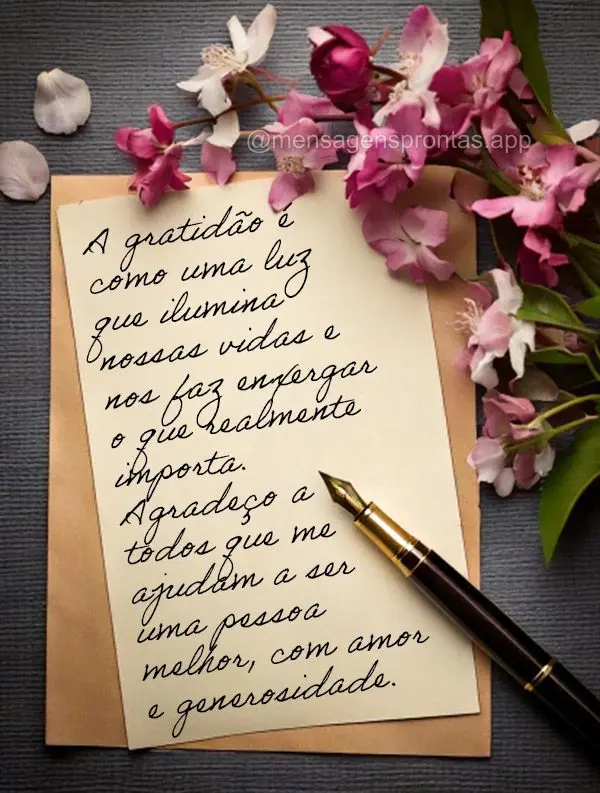 @mensagensprontas.app
A gratidão é
como uma luz
que ilumina
nossas vidas e
nos faz enxergar
o que realmente
importa.
Agradeço a
todos que me
ajudam a ser
uma pessoa
melhor, com amor
e generosidade.